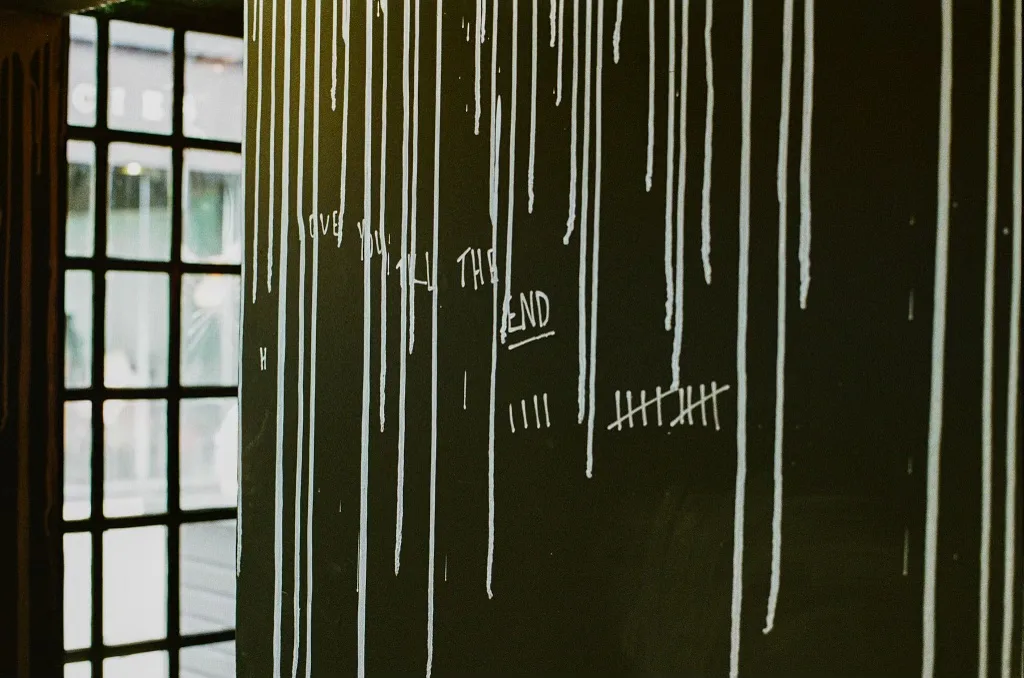 OVE YOU TILL THE
END
H